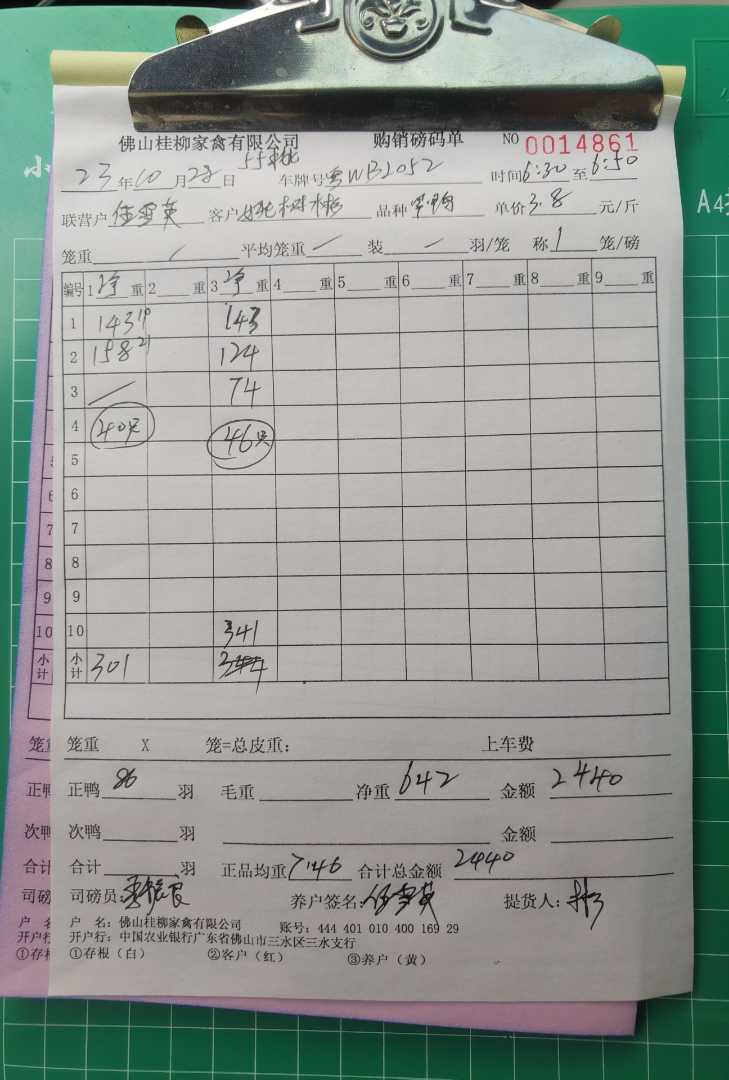 佛山桂柳家禽有限公司 购销磅码单 NO 0014861
23年10月28日 车牌号粤WB2052 时间6:30至6:50
联营户 任雪英 客户 品种 单价3.8元/斤
笼重 / 平均笼重 — 装 — 羽/笼 称1笼/磅
编号 1净重 2重 3净重 4重 5重 6重 7重 8重 9重
1 143 19 143
2 158 21 124
3 / 74
4 40只
5 46只
6
7
8
9
10 341
小计 301
笼重 X 笼=总皮重: 上车费
正鸭86羽 毛重 净重642 金额2440
次鸭 羽 金额
合计 羽 正品均重7.46 合计总金额2440
司磅员: 养户签名:任雪英 提货人:
户 名:佛山桂柳家禽有限公司 账号:444 401 010 400 169 29
开户行:中国农业银行广东省佛山市三水区三水支行
①存根(白) ②客户(红) ③养户(黄)